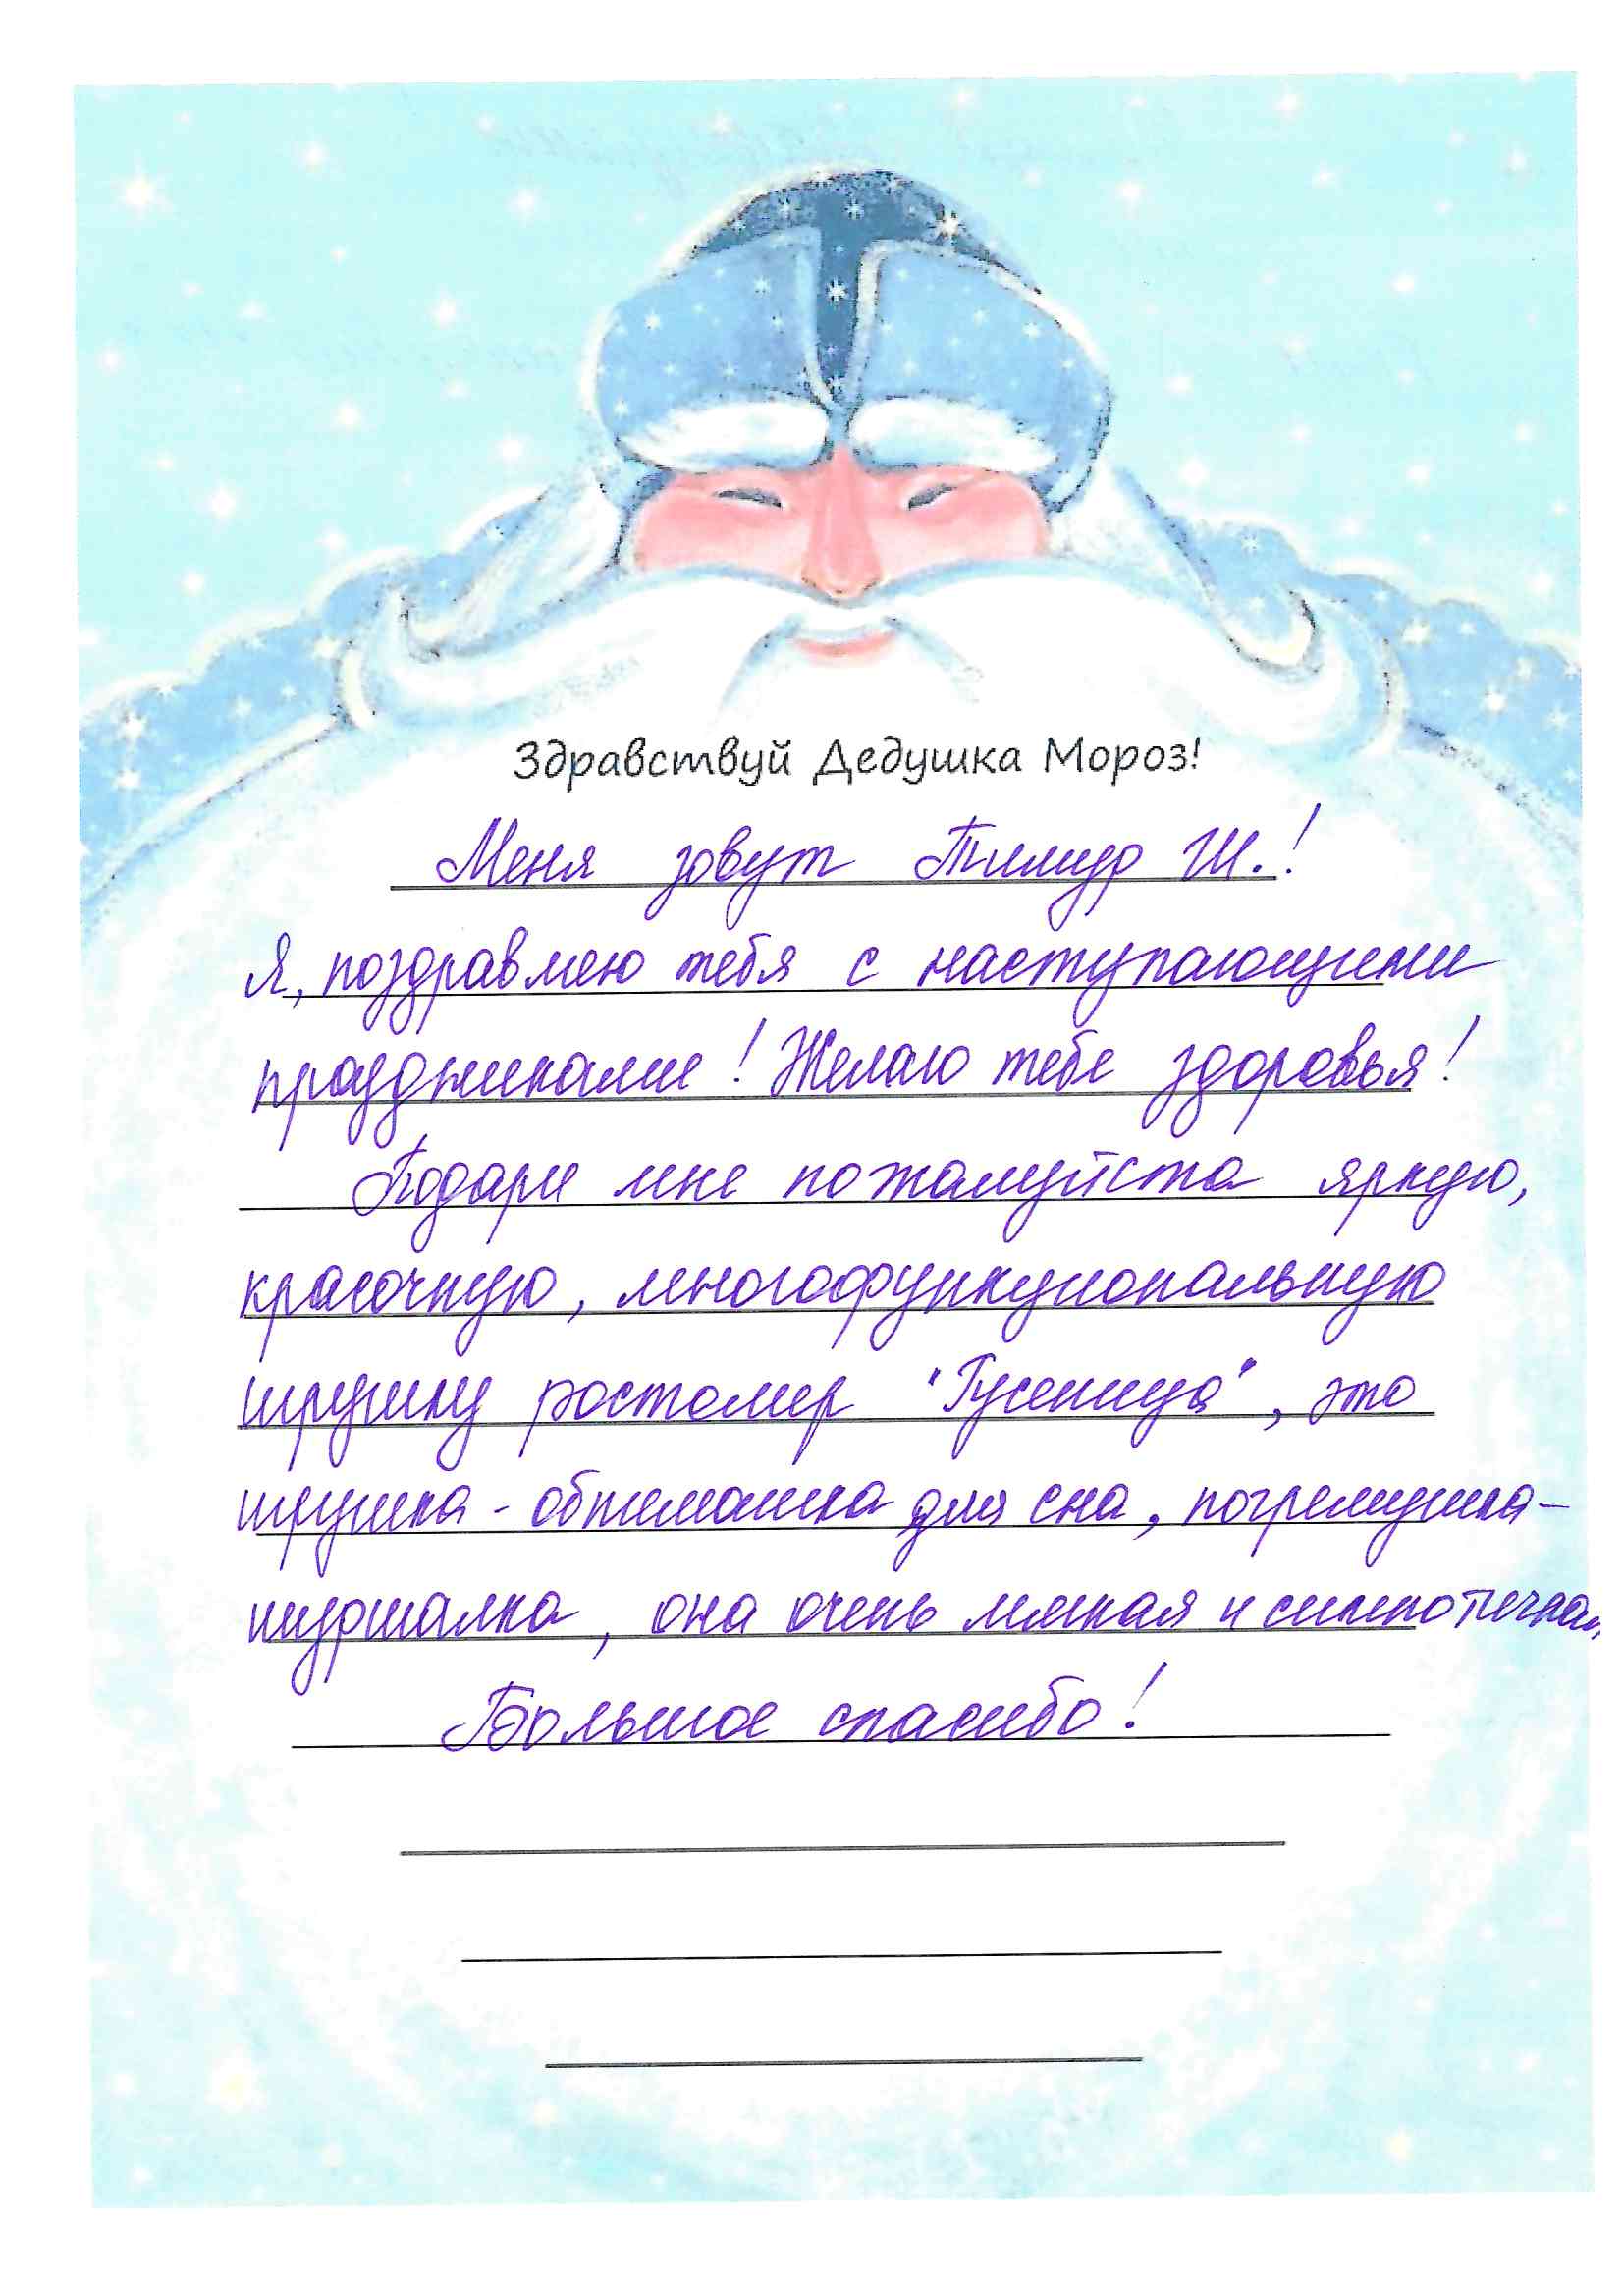 Здравствуй Дедушка Мороз!
Меня зовут Тимур Ш.!
Я, поздравляю тебя с наступающими
праздниками! Желаю тебе здоровья!
Подари мне пожалуйста яркую,
красочную, многофункциональную
игрушку ростомер "Гусеница", это
игрушка - обнимашка для сна, погремушка-
шуршалка, она очень мягкая и симпотичная.
Большое спасибо!